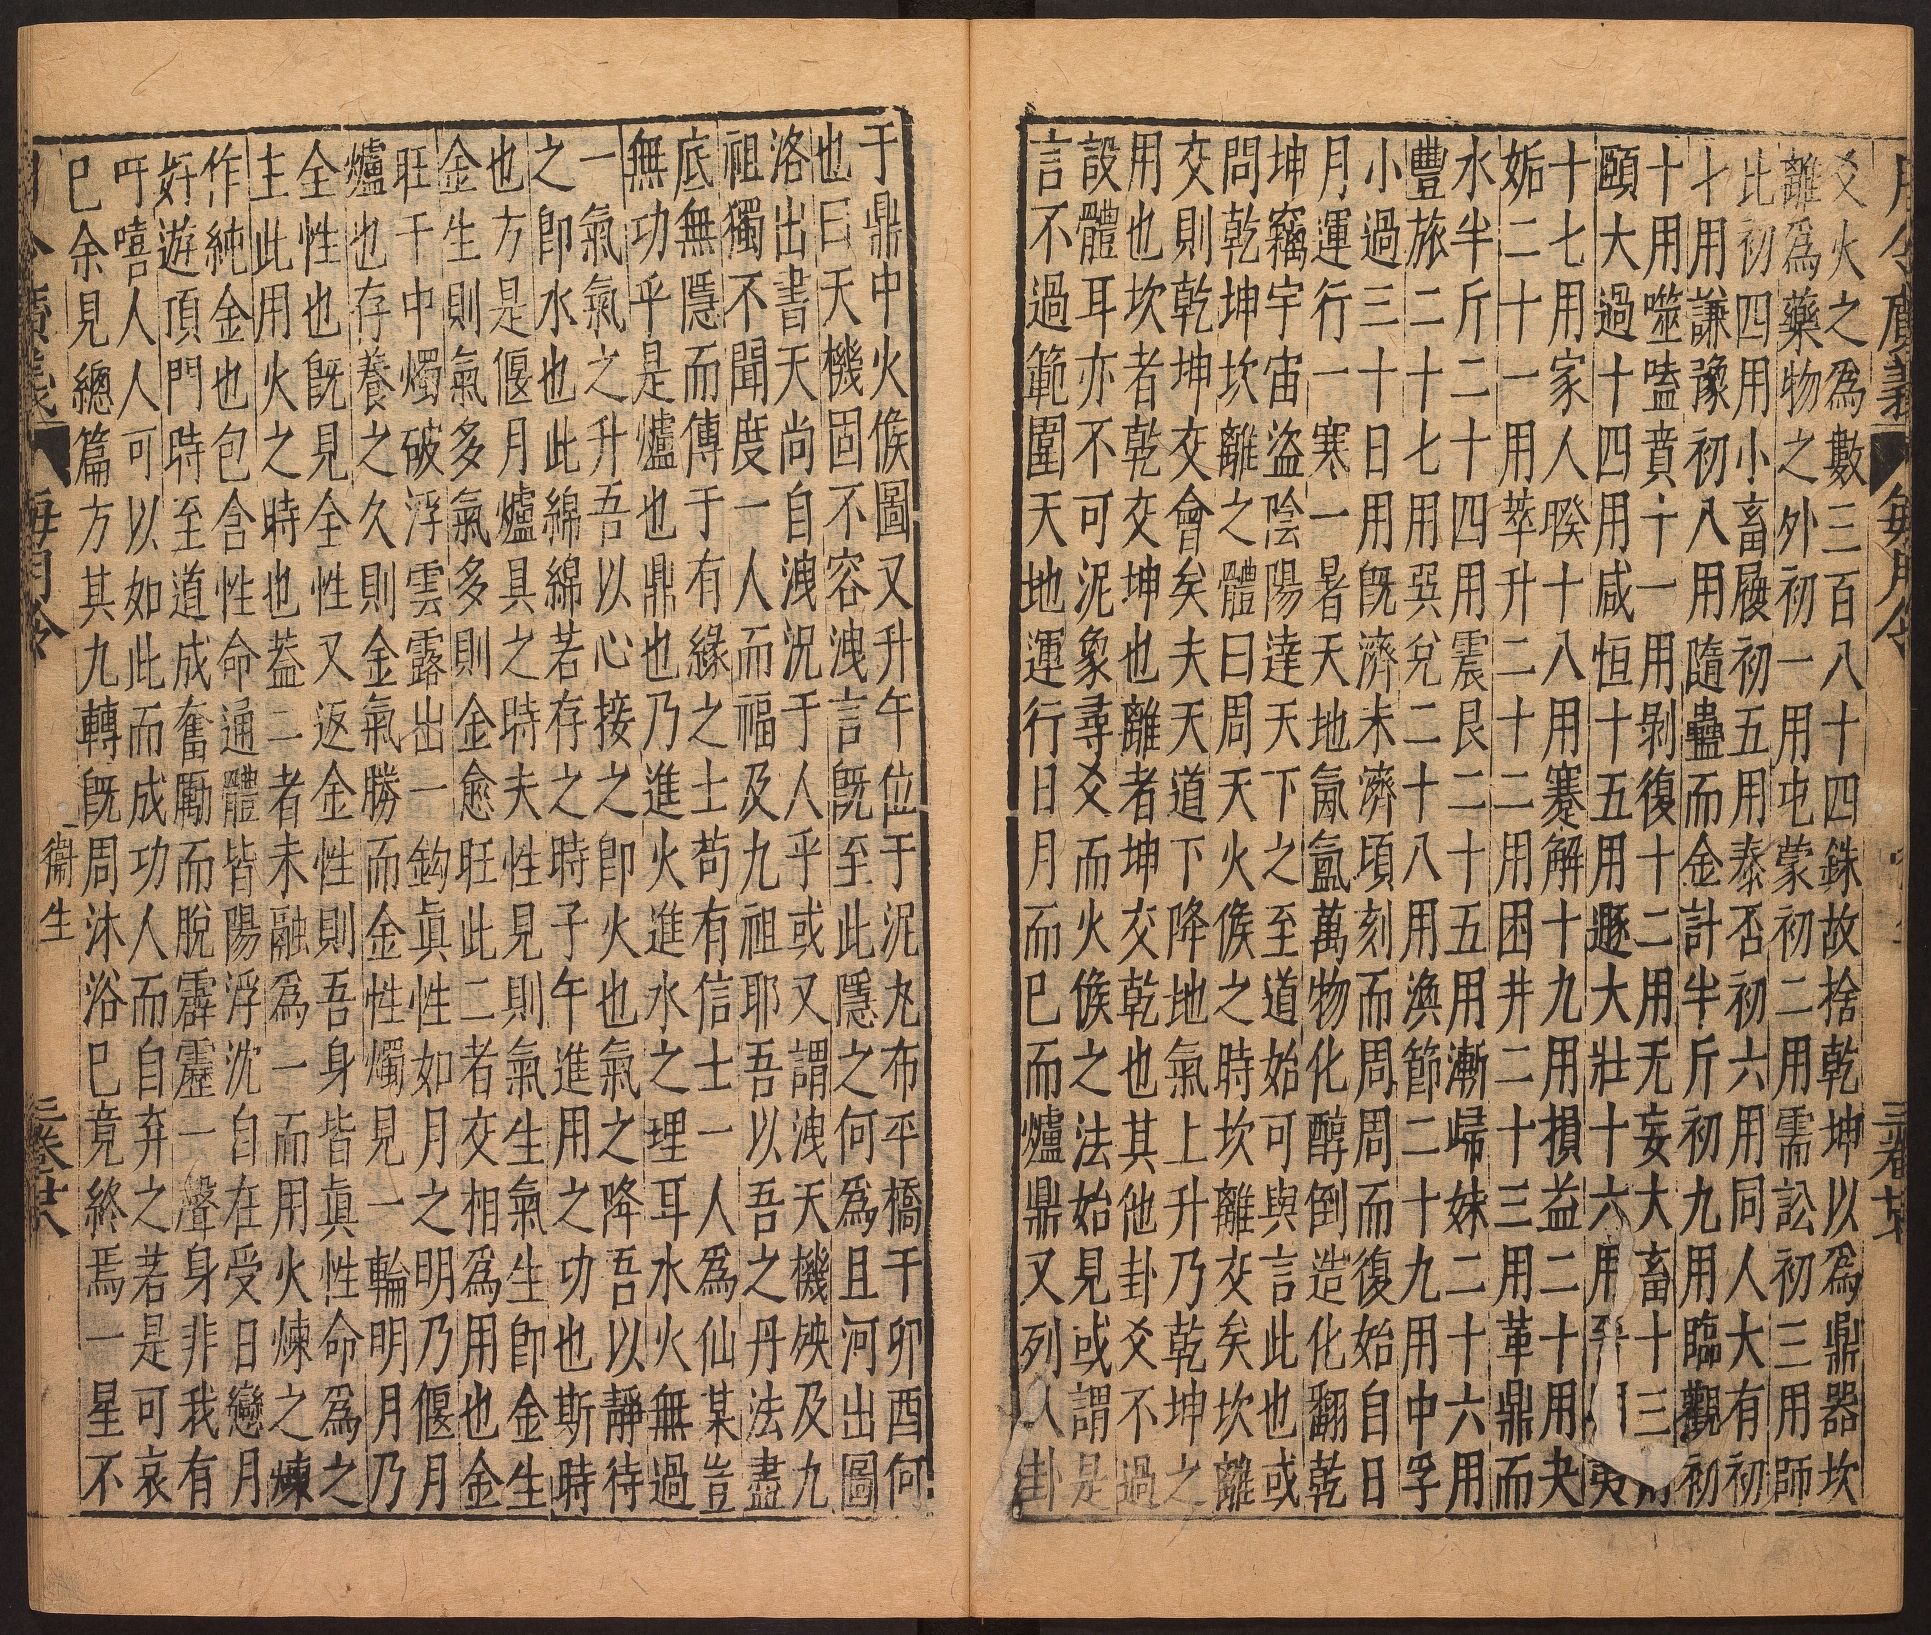 月令廣義 每月令
爻火之爲數三百八十四銖故捨乾坤以爲鼎器坎
離爲藥物之外初一用屯蒙初二用需訟初三用師
比初四用小畜履初五用泰否初六用同人大有初
七用謙豫初八用隨蠱而金計半斤初九用臨觀初
十用噬嗑賁十一用剝復十二用无妄大畜十三
頤大過十四用咸恒十五用遯大壯十六用夷
十七用家人睽十八用蹇解十九用損益二十用夬
姤二十一用萃升二十二用困井二十三用革鼎而
水半斤二十四用震艮二十五用漸歸妹二十六用
豐旅二十七用巽兌二十八用渙節二十九用中孚
小過三十日用旣濟未濟頃刻而周周而復始自日
月運行一寒一暑天地氤氳萬物化醇倒造化翻乾
坤竊宇宙盜陰陽達天下之至道始可與言此也或
問乾坤坎離之體曰周天火候之時坎離交矣坎離
交則乾坤交會矣夫天道下降地氣上升乃乾坤之
用也坎者乾交坤也離者坤交乾也其他卦爻不過
設體耳亦不可泥象尋爻而火候之法始見或謂是
言不過範圍天地運行日月而已而爐鼎又列人卦
于鼎中火候圖又升午位于泥丸布平橋于卯酉何
也曰天機固不容洩言旣至此隱之何爲且河出圖
洛出書天尚自洩況于人乎或又謂洩天機殃及九
祖獨不聞度一人而福及九祖耶吾以吾之丹法盡
底無隱而傳于有緣之士苟有信士一人爲仙某豈
無功乎是爐也鼎也乃進火進水之理耳水火無過
一氣氣之升吾以心接之卽火也氣之降吾以靜待
之卽水也此綿綿若存之時子午進用之功也斯時
也方是偃月爐具之時夫性見則氣生氣生卽金生
金生則氣多氣多則金愈旺此二者交相爲用也金
旺于中燭破浮雲露出一鈎眞性如月之明乃偃月
爐也存養之久則金氣勝而金性燭見一輪明月乃
全性也旣見全性又返金性則吾身皆眞性命爲之
主此用火之時也蓋二者未融爲一而用火煉之煉
作純金也包含性命通體皆陽浮沈自在受日戀月
好遊頂門時至道成奮勵而脫霹靂一聲身非我有
吁嘻人人可以如此而成功人而自弃之若是可哀
已余見總篇方其九轉旣周沐浴已竟終焉一星不
衞生